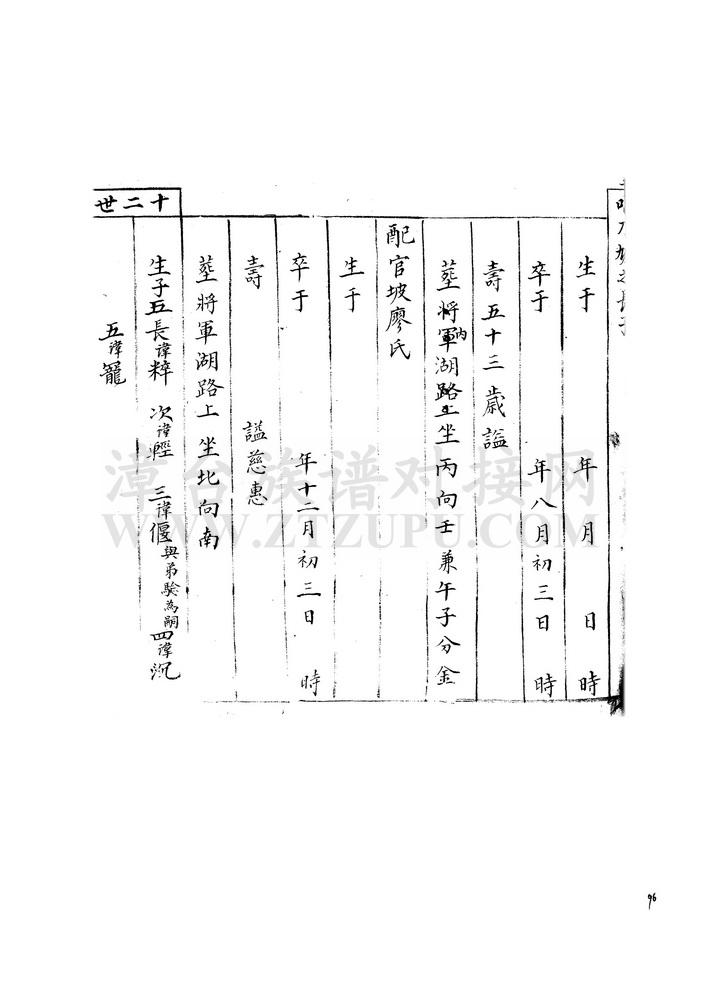 生于 年 月 日 時
卒于 年八月初三日 時
壽五十三歲謚
塟將軍內湖路上坐丙向壬兼午子分金
配官坡廖氏
生于
卒于 年十二月初三日 時
壽 謚慈惠
塟將軍湖路上坐北向南
十二世
生子五長諱粹 次諱輕 三諱偃與弟驗為嗣四諱沉
五諱寵
漳台族谱对接网
WWW.ZTZUPU.COM
96